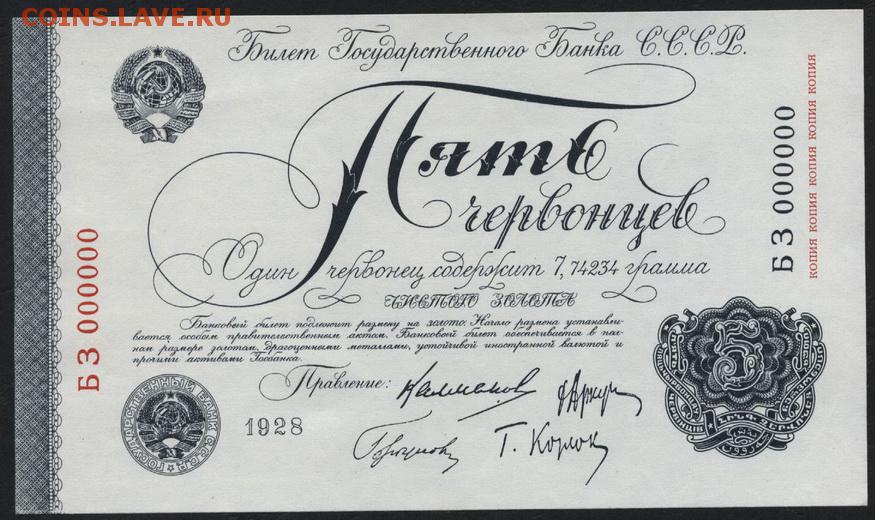 COINS.LAVE.RU
Билет Государственного Банка С.С.С.Р.
Пять
червонцев
Один червонец содержит 7,74234 грамма
чистого золота
Банковый билет подлежит размену на золото. Начало размена устанавли-
вается особым правительственным актом. Банковый билет обеспечивается в пол-
ном размере золотом, драгоценными металлами, устойчивой иностранной валютой и
прочими активами Госбанка.
Правление:
1928
Г. Корлок
БЗ 000000
БЗ 000000
КОПИЯ КОПИЯ КОПИЯ КОПИЯ КОПИЯ
ГОСУДАРСТВЕННЫЙ БАНК СССР
5